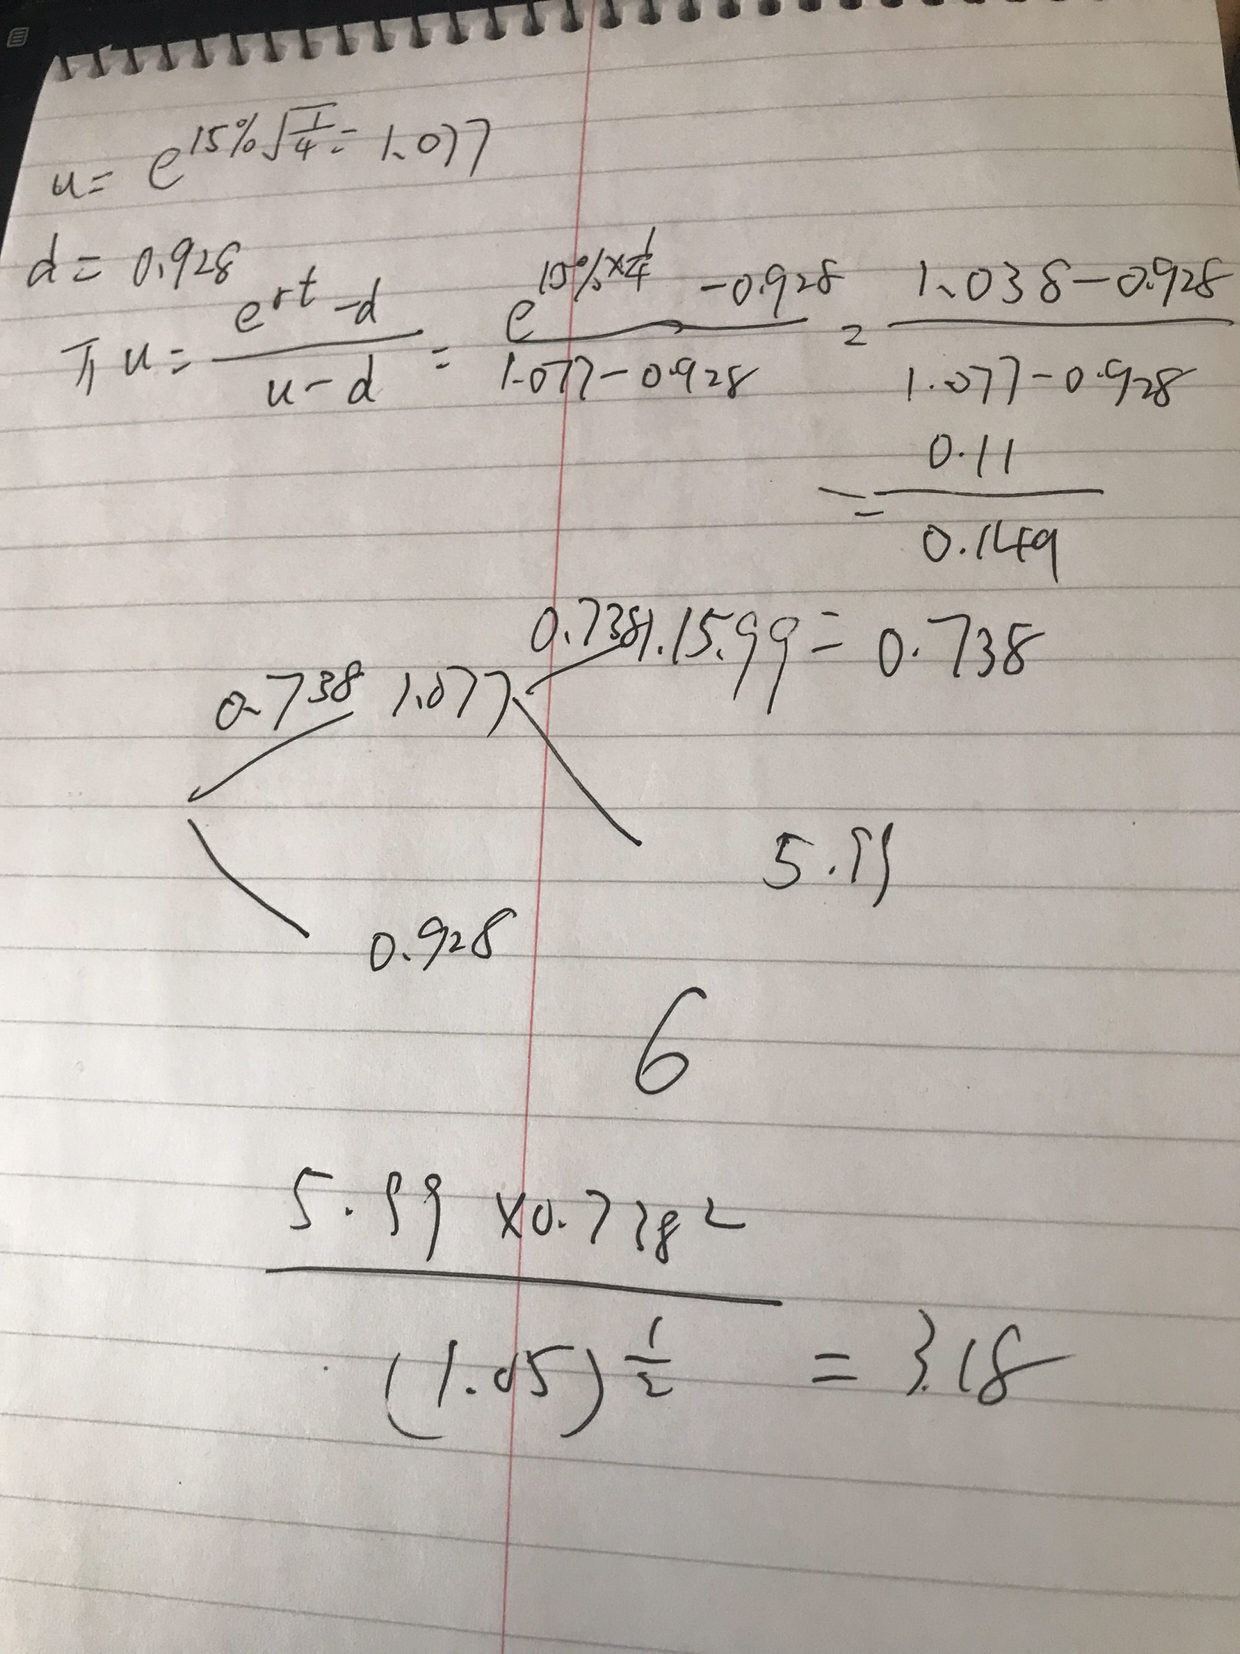 u = e^15%√1/4 = 1.077
d = 0.928
πu = e^rt - d / u - d = e^10%×1/4 - 0.928 / 1.077 - 0.928 = 1.038 - 0.928 / 1.077 - 0.928
= 0.11 / 0.149
0.738 1.15.99 = 0.738
0.738 1.077
5.99
0.928
6
5.99 × 0.738²
(1.05)^1/2 = 3.18